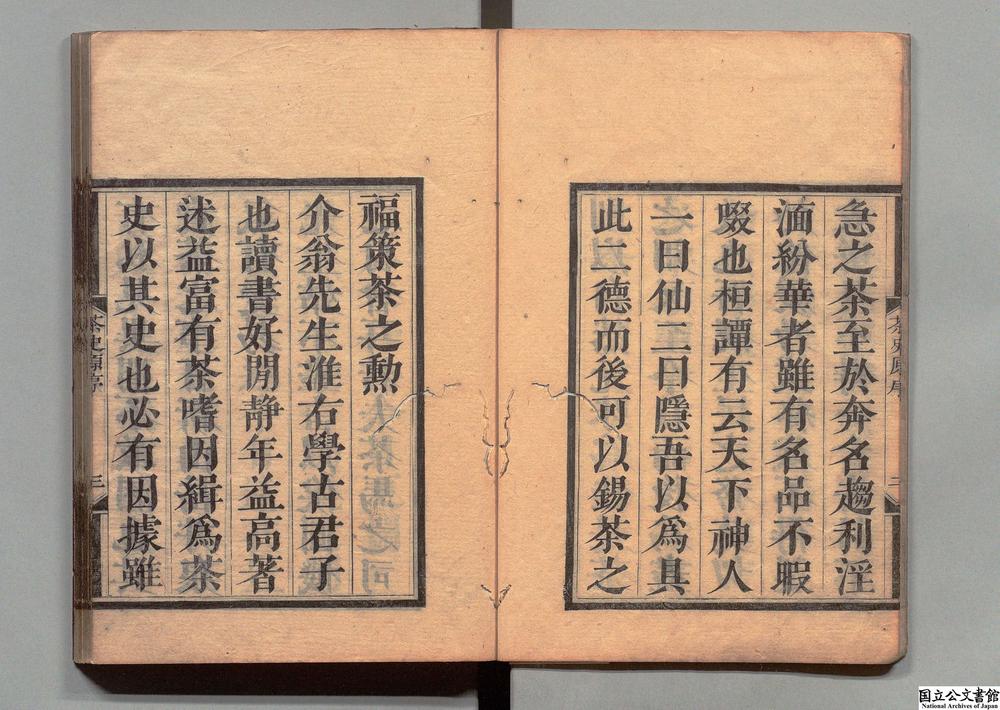 急之茶至於奔名趨利淫
湎紛華者雖有名品不暇
啜也桓譚有云天下神人
一曰仙二曰隱吾以爲具
此二德而後可以錫茶之
二
福策茶之勳
介翁先生淮右學古君子
也讀書好閒静年益高著
述益富有茶嗜因緝爲茶
史以其史也必有因據雖
茶史原序
三
国立公文書館
National Archives of Japan